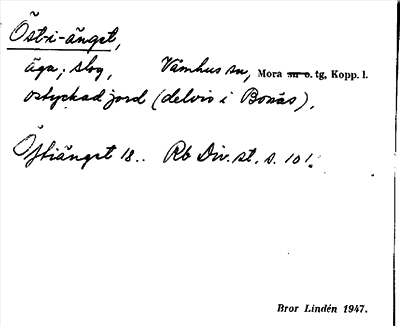 Öst-i-änget,
äga; slog, Våmhus sn, Mora sn o. tg, Kopp. l.
ostyckad jord (delvis i Bonäs).
Östiänget 18.. Rb Div. st. s. 101.
Bror Lindén 1947.